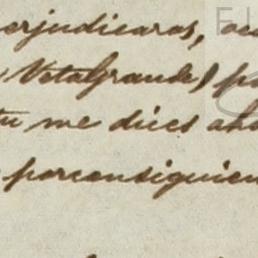 erjudicaras,
Vetagrande,
tu me dices aho
porconsiguien